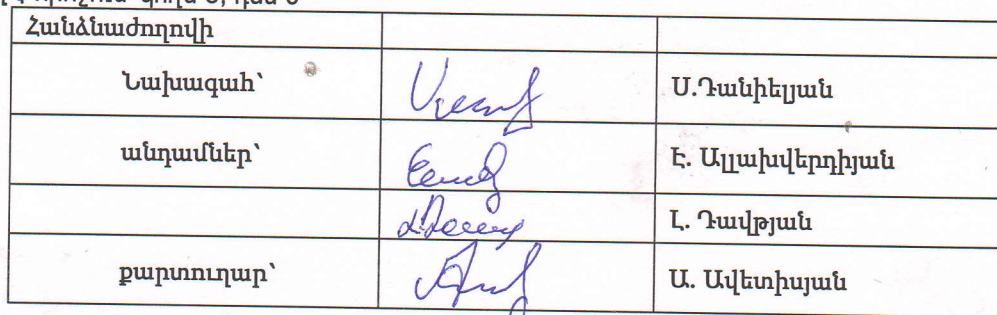 Հանձնաժողովի
Նախագահ՝ Ս.Դանիելյան
անդամներ՝ Է. Ալլախվերդիյան
Լ. Դավթյան
քարտուղար՝ Ա. Ավետիսյան